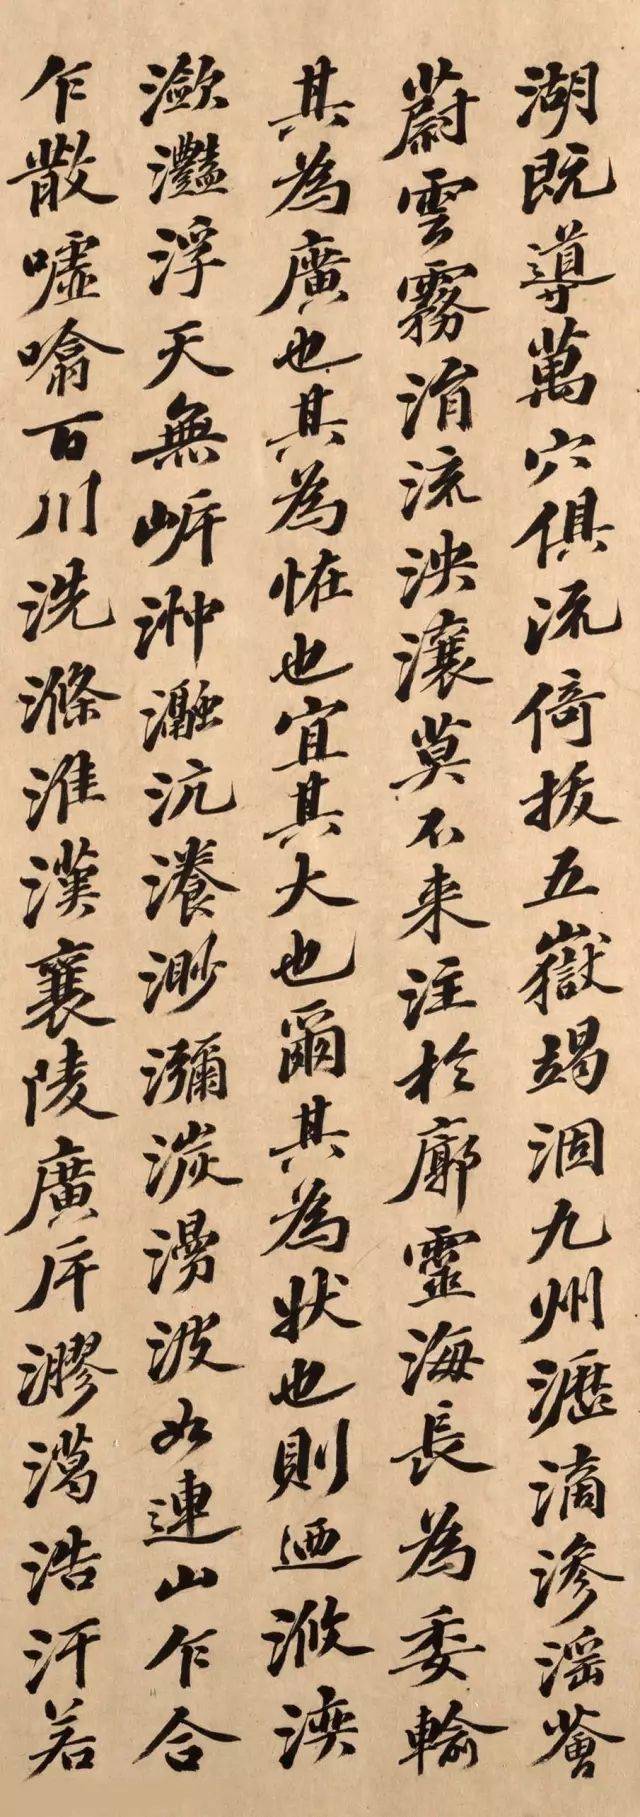 湖既導萬穴俱流倚拔五嶽竭涸九州瀝滴滲淫薈
蔚雲霧涓流泱瀼莫不来注於廓靈海長為委輸
其為廣也其為恠也宜其大也爾其為状也則迺浟湙
瀲灩浮天無岸沖瀜沆瀁渺瀰湠漫波如連山乍合
乍散噓噏百川洗滌淮漢襄陵廣斥㶀漡浩汗若